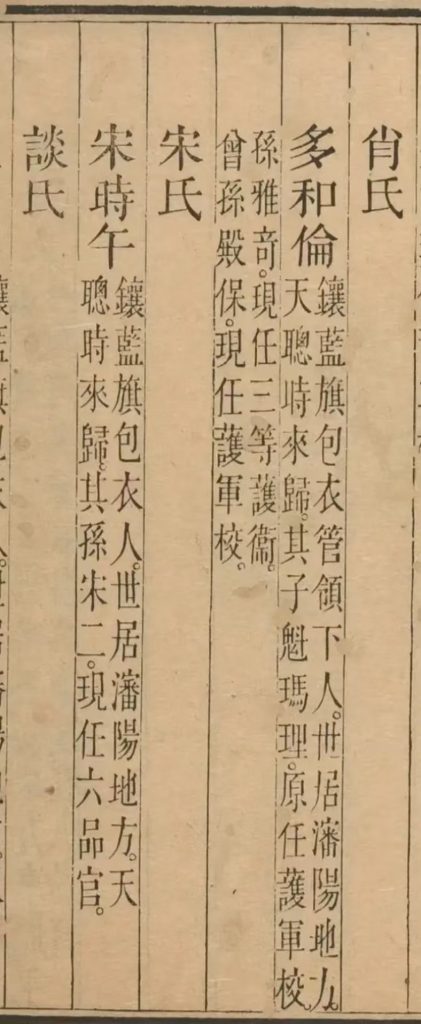 肖氏
多和倫
鑲藍旗包衣管領下人。世居瀋陽地方。
天聰時來歸。其子魁瑪理。原任護軍校。
孫雅竒。現任三等護衞。
曾孫殿保。現任護軍校。
宋氏
宋時午
鑲藍旗包衣人。世居瀋陽地方。天
聰時來歸。其孫宋二。現任六品官。
談氏